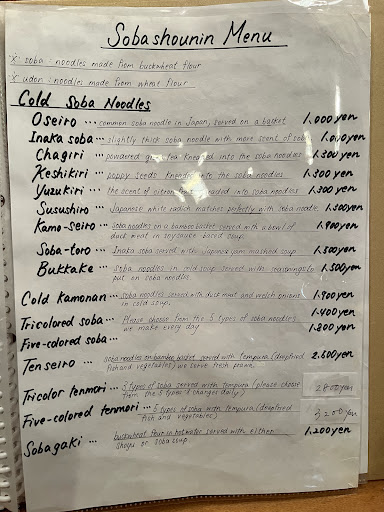 Sobashounin Menu
※ soba : noodles made from buckwheat flour
※ udon : noodles made from wheat flour
Cold Soba Noodles
Oseiro ... common soba noodle in Japan, served on a basket 1.000yen
Inaka soba ... slightly thick soba noodle with more scent of soba 1.000yen
Chagiri ... powdered green tea kneaded into the soba noodles 1.300yen
Keshikiri ... poppy seeds kneaded into the soba noodles 1.300yen
Yuzukiri ... the scent of citron fruit kneaded into soba noodles 1.300yen
Susushiro ... Japanese white radich matches perfectly with soba noodle 1.300yen
Kamo-seiro ... soba noodles on a bamboo basket served with a bowl of 1.900yen
duck meat in soy sauce based soup
Soba-toro ... Inaka soba served with Japanese yam mashed soup 1.500yen
Bukkake ... Soba noodles in cold soup served with seasonings to 1.500yen
put on soba noodles
Cold Kamonan ... soba noodles served with duck meat and welch onions 1.900yen
in cold soup.
Tricolored soba ... Please choose from the 5 types of soba noodles 1.400yen
we make every day 1.800yen
Five-colored soba ...
Tenseiro ... soba noodles on bamboo basket served with Tempura (deepfried 2.600yen
fish and vegetables) we serve fresh prawn.
Tricolor tenmori ... 3 types of soba served with tempura (please choose 2800yen
from the 5 types & changes daily)
Five-colored tenmori ... 5 types of soba with tempura (deepfried 3200yen
fish and vegetables)
Sobagaki ... buckwheat flour in hot water served with either 1.200yen
shoyu or soba soup.